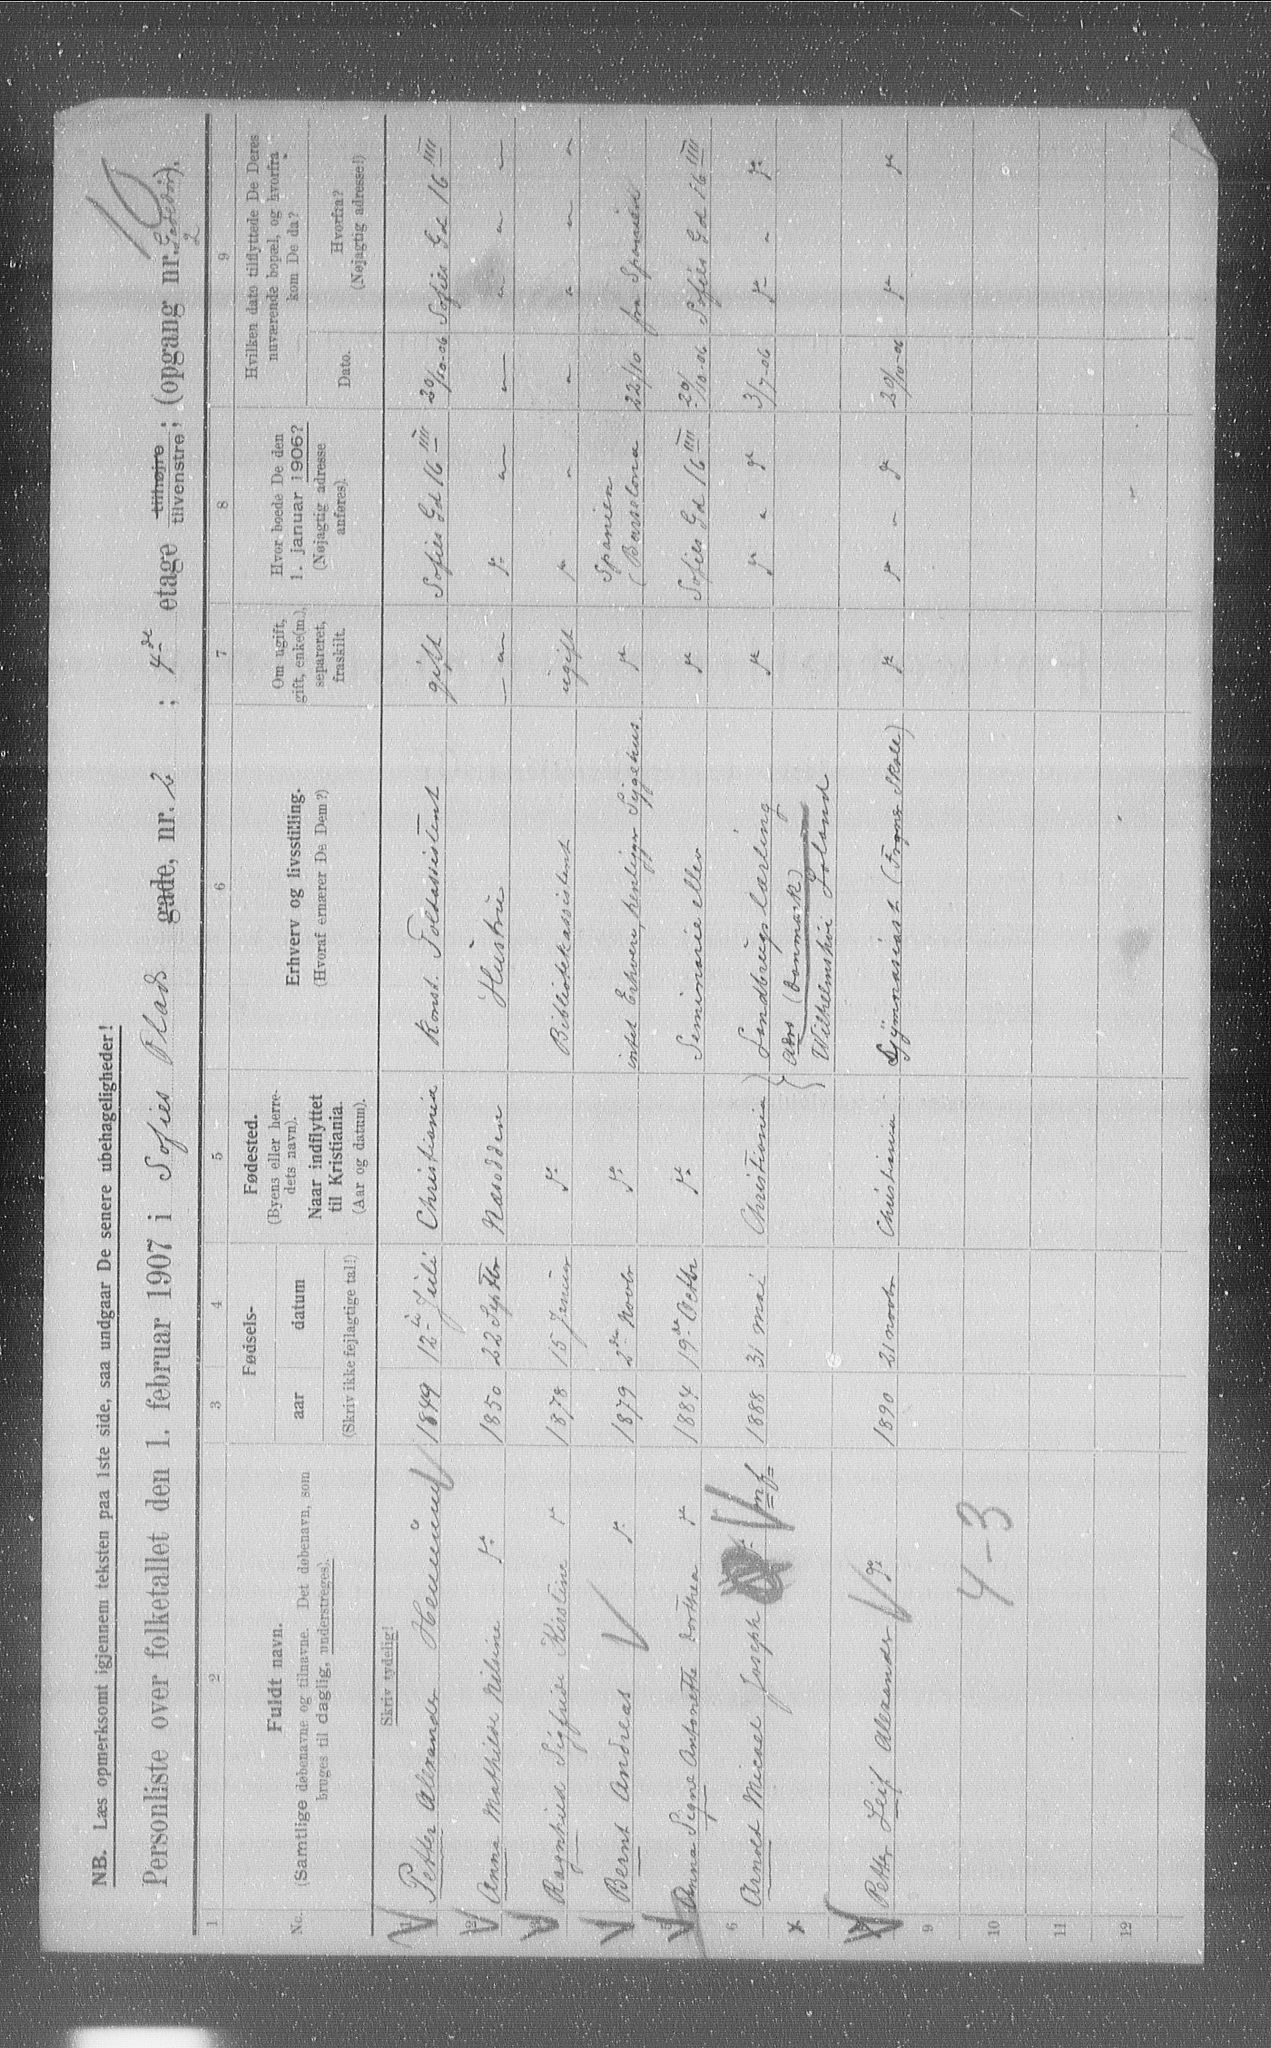 NB. Læs opmerksomt igjennem teksten paa 1ste side, saa undgaar De senere ubehageligheder!
10
Personliste over folketallet den 1. februar 1907 i Sofies Plads gade, nr. 2 ; 4de etage tilhøire tilvenstre; (opgang nr. 2
1 2 3 4 5 6 7 8 9
No.
Fuldt navn.
(Samtlige døbenavne og tilnavne. Det døbenavn, som
bruges til daglig, understreges).
Fødsels-
aar
datum
(Skriv ikke fejlagtige tal!)
Fødested.
(Byens eller herre-
dets navn).
Naar indflyttet
til Kristiania.
(Aar og datum).
Erhverv og livsstilling.
(Hvoraf ernærer De Dem?)
Om ugift,
gift, enke(m.),
separeret,
fraskilt.
Hvor boede De den
1. januar 1906?
(Nøjagtig adresse
anføres).
Hvilken dato tilflyttede De Deres
nuværende bopæl, og hvorfra
kom De da?
Dato.
Hvorfra?
(Nøjagtig adresse!)
Skriv tydelig!
1 Petter Alexander 1849 12te Juli Christiania Konst. Toldassistent gift Sofies Gd 16 IIII 20/10-06 Sofies Gd 16 IIII
2 Anna Mathilde Nilsine do 1850 22 Septbr Næsodden Hustru — " — do " — " — " " —
3 Ragnhild Sigfride Kirstine " 1878 15 Januar do Bibliotekassistent ugift " " " " " "
4 Bernt Andreas do 1879 2den Novbr do intet Erhverv, Sygehus do Spanien (Barselona 22/10 fra Spanien
5 Anna Signe Antonette Dorthea " 1884 19de Octbr do Seminarieelev do Sofies Gd 16 IIII 20/10-06 Sofies Gd 16 IIII
6 Arnold Micael Joseph do mf 1888 31 mai Christiania Landbrugslærling do do " do 3/7-06 do " do
x adrs (Danmark)
Wilhelmshøi Loland
8 Petter Leif Alexander do 1890 21 novbr Christiania Gymnasiast (Frogner Skole) do do " do 20/10-06 do do
9
10
11
12
4-3